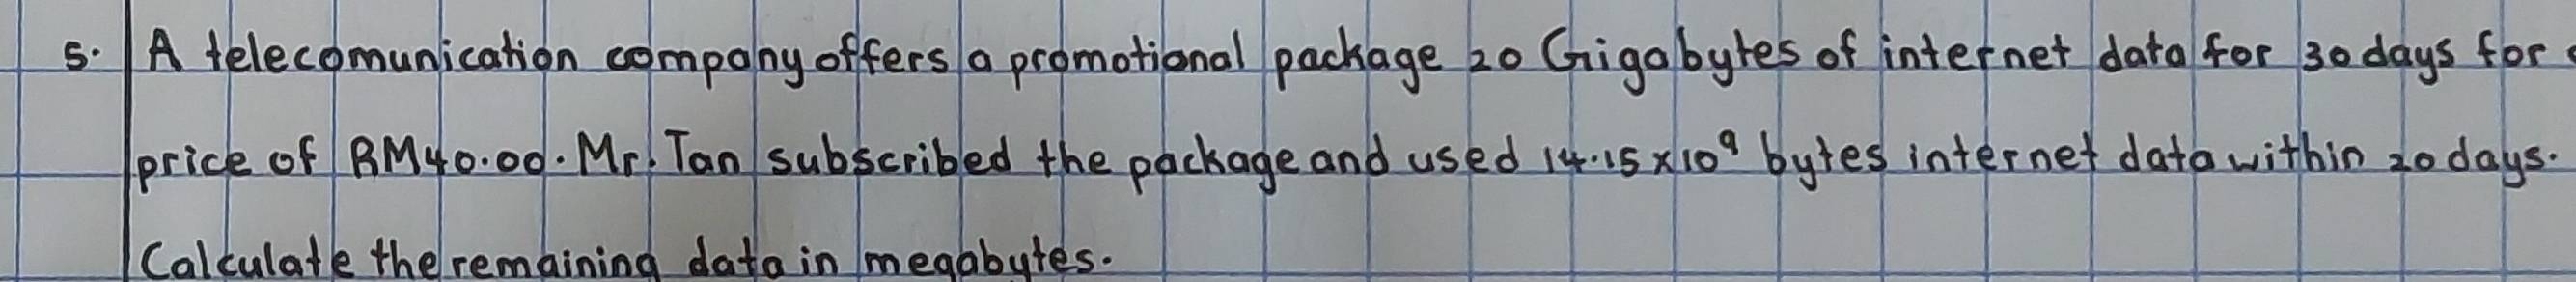 5. A telecomunication company offers a promotional package 20 Gigabytes of internet data for 30 days for
price of RM40.00. Mr. Tan subscribed the package and used 14.15 x 10⁹ bytes internet data within 20 days.
Calculate the remaining data in megabytes.